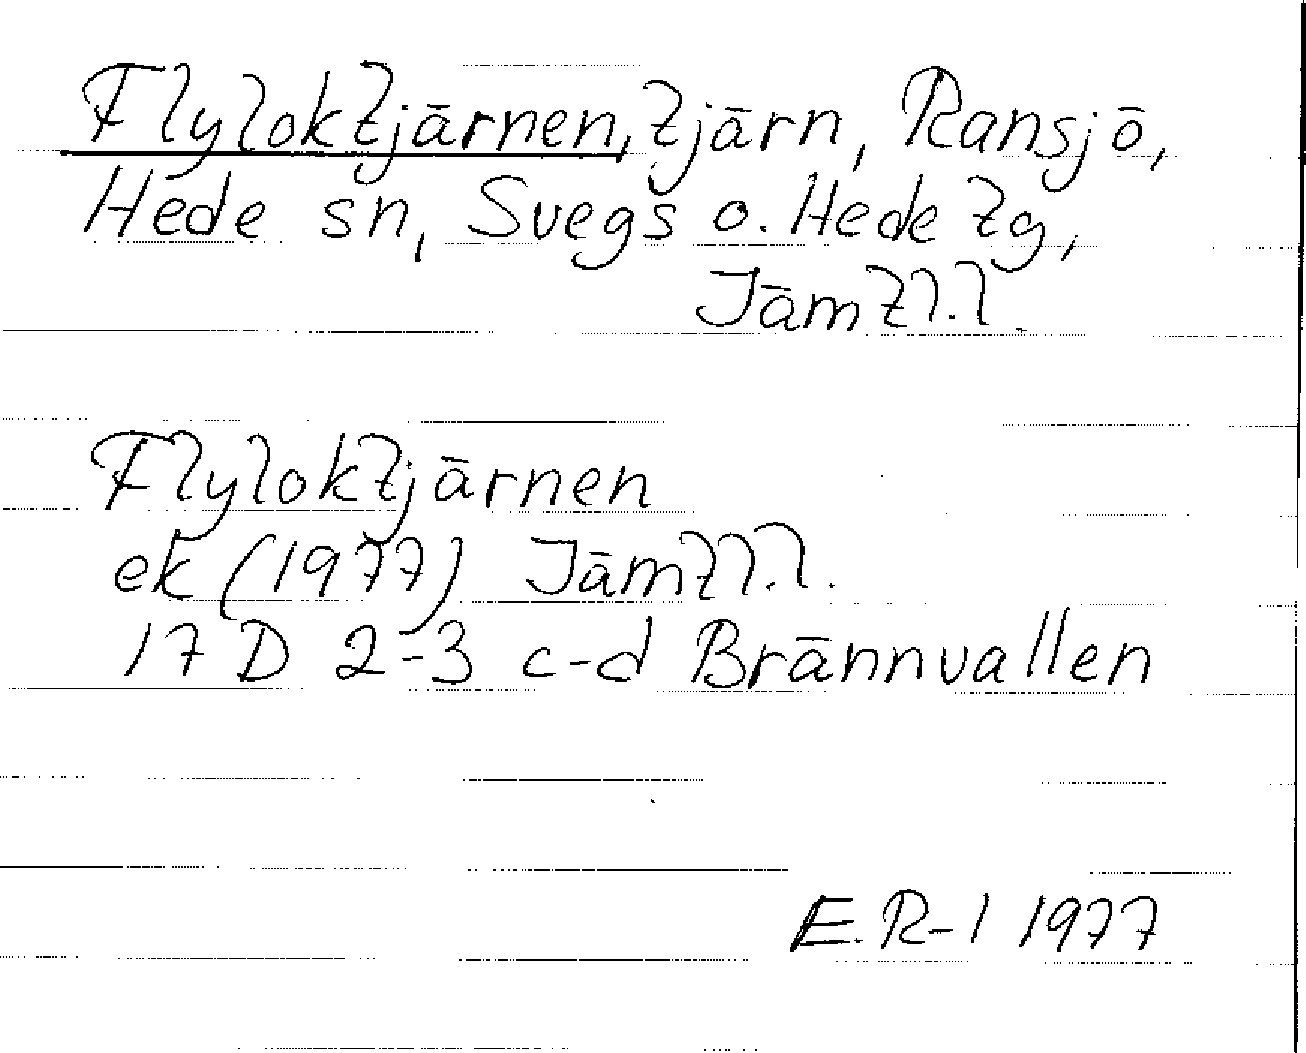 Flyloktjärnen, tjärn, Ransjö,
Hede sn, Svegs o. Hede tg,
Jämtl.l.
Flyloktjärnen
ek (1977) Jämtl.l.
17 D 2-3 c-d Brännvallen
E. R-l 1977